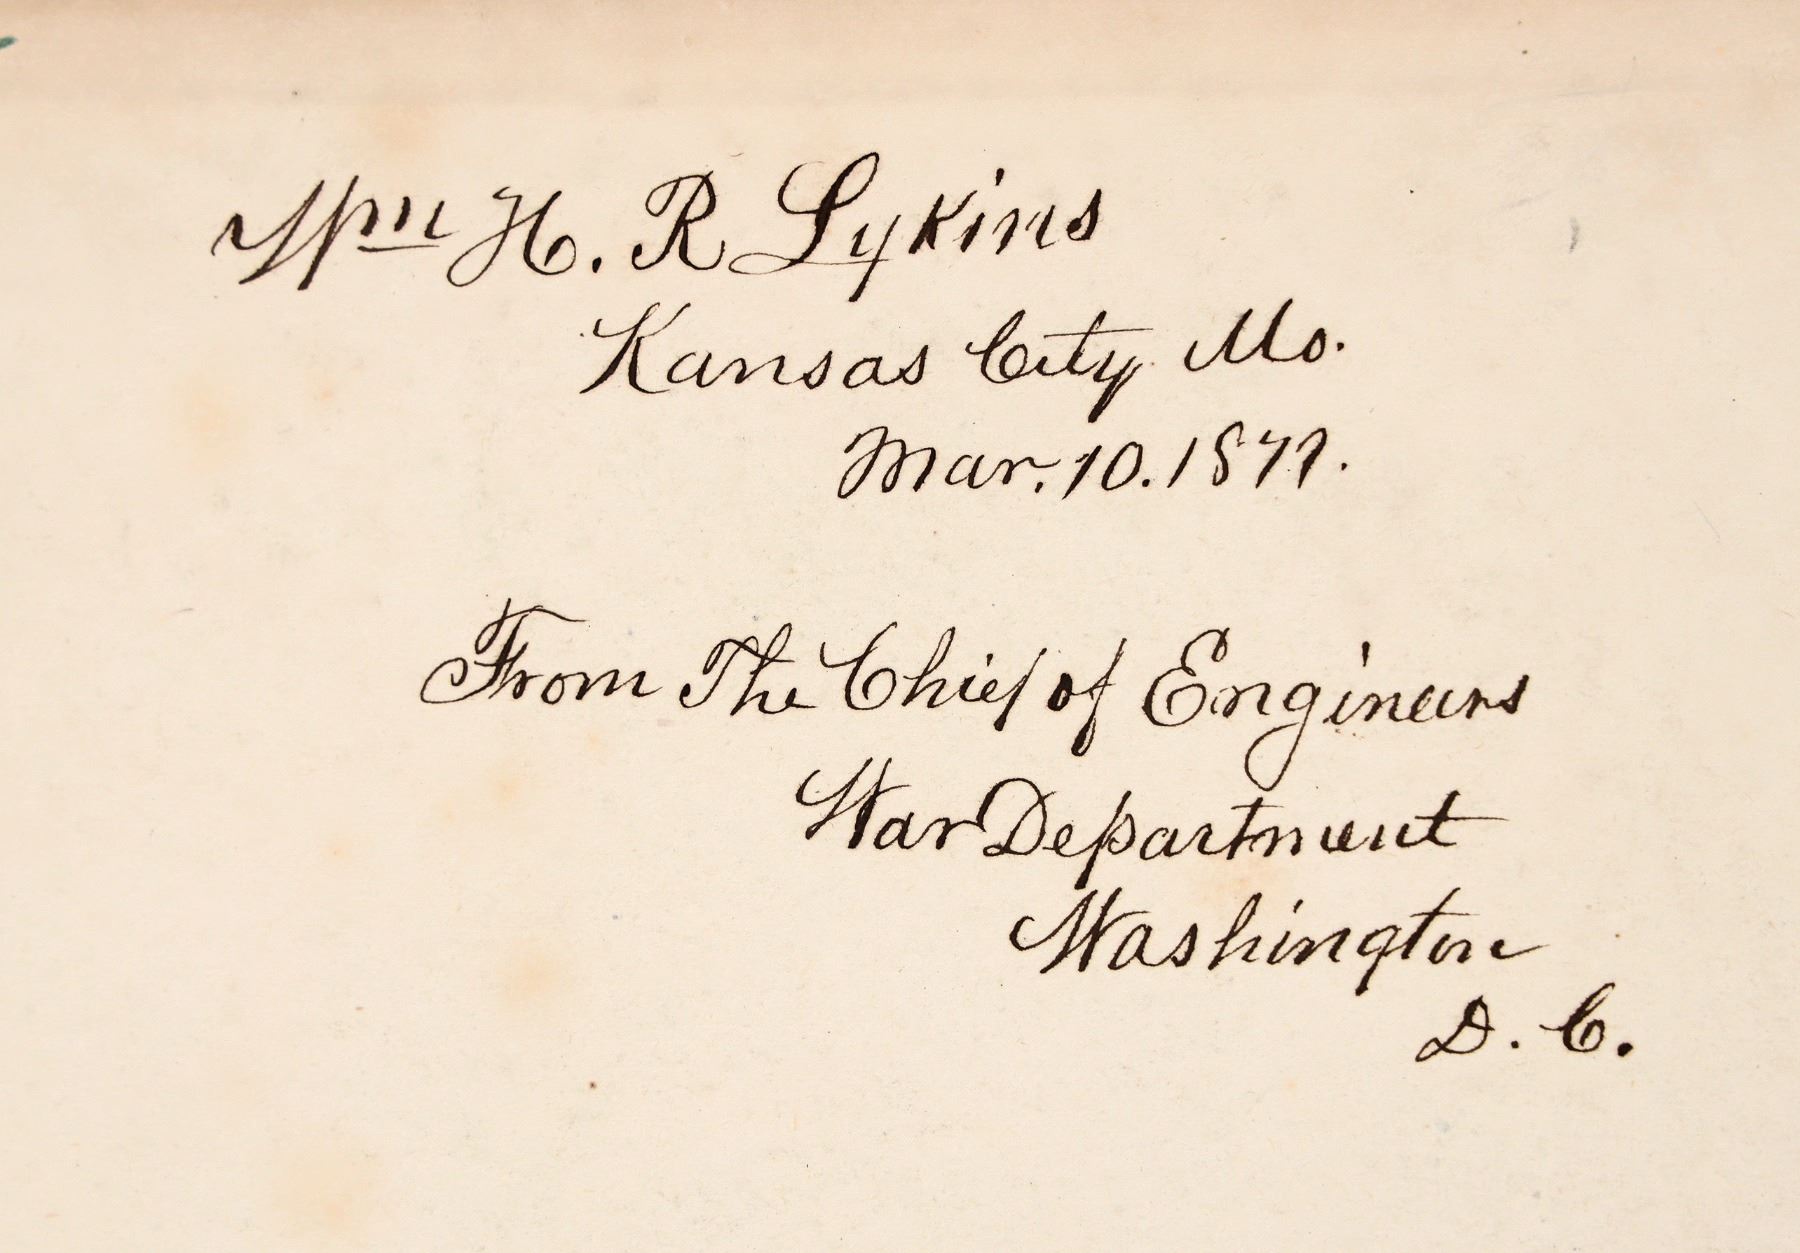 Wm H. R Lykins
Kansas City Mo.
Mar. 10. 1877.
From The Chief of Engineers
War Department
Washington
D. C.